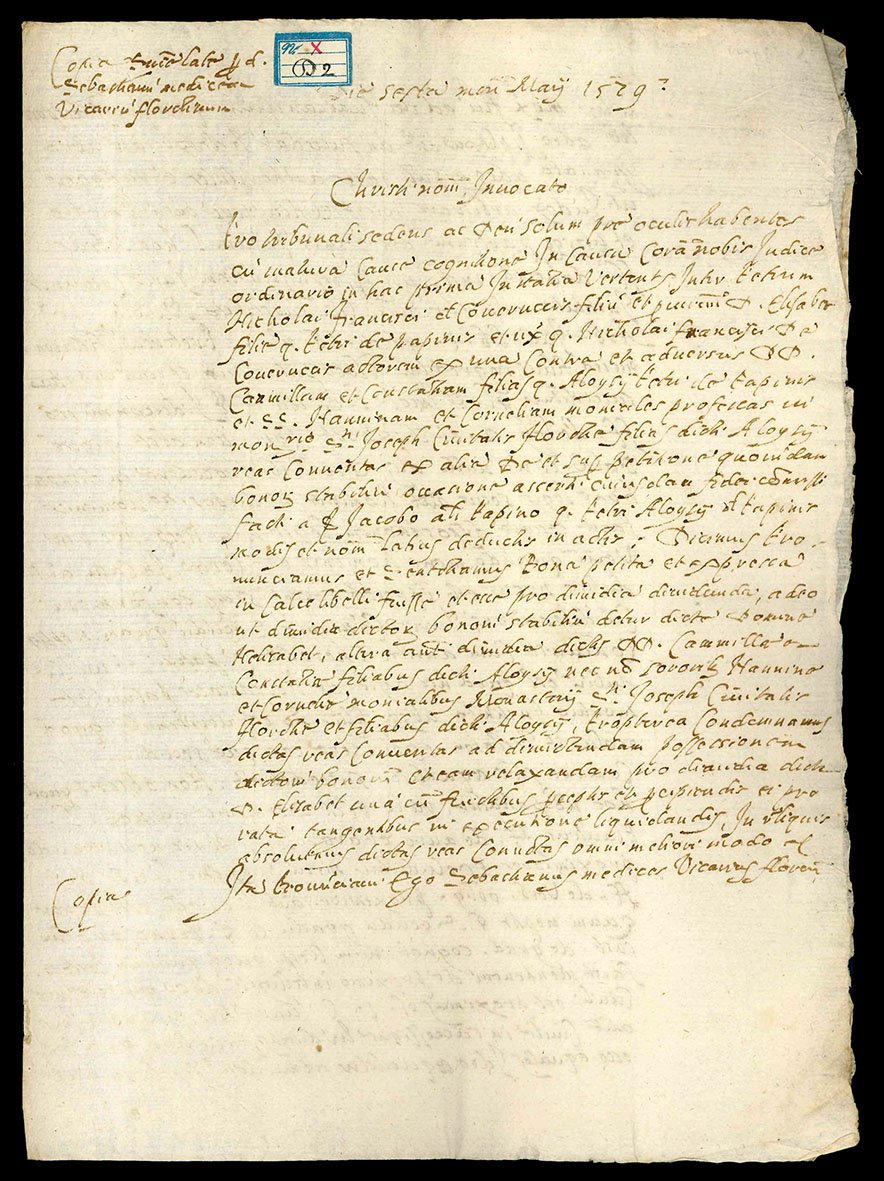 Copia Sniẽ late p d.
Sebastianũ medicea
Vicariũ florentinum
92 X
D 2
Die sexta mens Maij 1579
Christi nom̃ Invocato
Pro tribunali sedens ac Deũ solum pre oculis habentes
cũ matura cause cognitione In Causa Corã nobis Judice
ordinario in hac prima Instãtia Vertent Inter Petrum
Nicholai Francisci et Conuerucis filiũ et D. Elisabet
filie q. Petri de papinis et ux q. Nicholai Francisci De
actorem ex una Contra et aduersus DD.
Camillam et Constãtiam filias q. Aloysij Petri de Papinis
et SS. Hanninam et Corneliam moniales professas in
mon.rio S.ti Joseph Ciuitatis Florẽtie filias dicti Aloysij
reas Conuentas ex alia De et sup petitione quorundam
bonoɤ stabiliũ occasione asserti cuiusdam fidei comissi
facti a Jacobo Papino q. Petri Aloysij de Papinis
modis et nom̃ latius deductis in actis. Dicimus Pro-
nunciamus et Sententiamus bona petita et expressa
in Calce libelli fuisse et esse pro dimidia diuidenda, adeo
ut dimidia dictoɤ bonorũ stabiliũ detur dicte Domine
Helisabet, altera aut dimidia dictis DD. Cammille
Constãtie filiabus dicti Aloysij nec nõ sororibɤ Hannine
et Cornelie monialibus Monasterij S.ti Joseph Ciuitatis
Florẽtie et filiabus dicti Aloysij, Propterea Condemnamus
dictas reas Conuentas ad dimittendam possessionem
dictorũ bonorũ et eam relaxandam pro dimidia dicte
D. Elisabet una cũ fructibus peeptis et peipiendis et pro
rata tangentibus in executione liquidandis, In reliquis
absoluimus dictas reas Conuẽtas omni meliori modo
Ita pronũciaui Ego Sebastianus medices Vicarius floren.
Copia